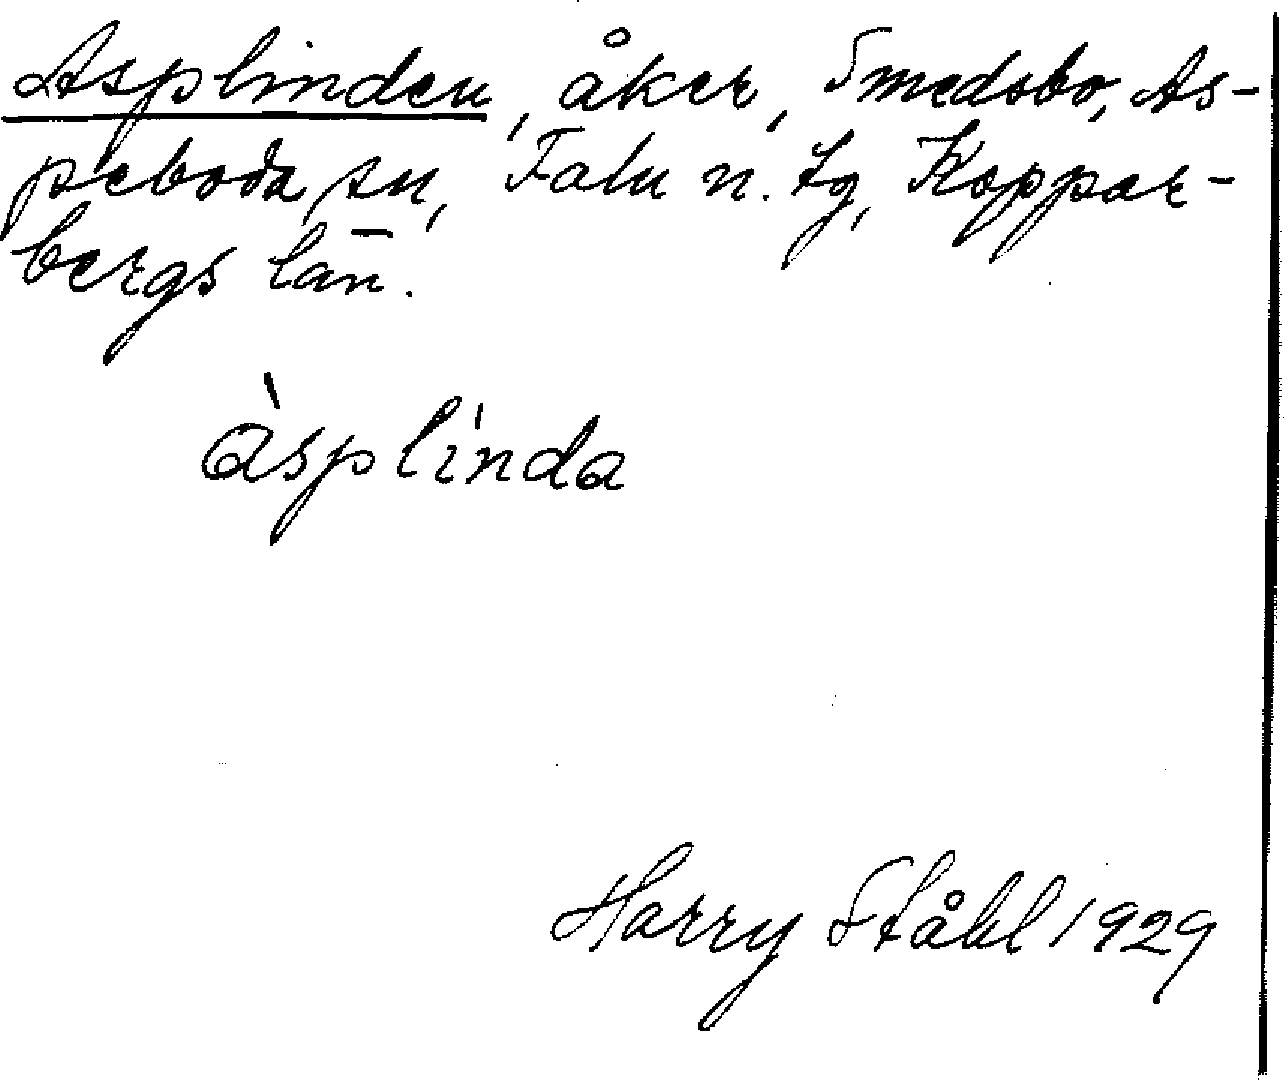 Asplinden, åker, Smedsbo, As-
peboda sn, Falu n. tg, Koppar-
bergs län.
àsplìnda
Harry Ståhl 1929